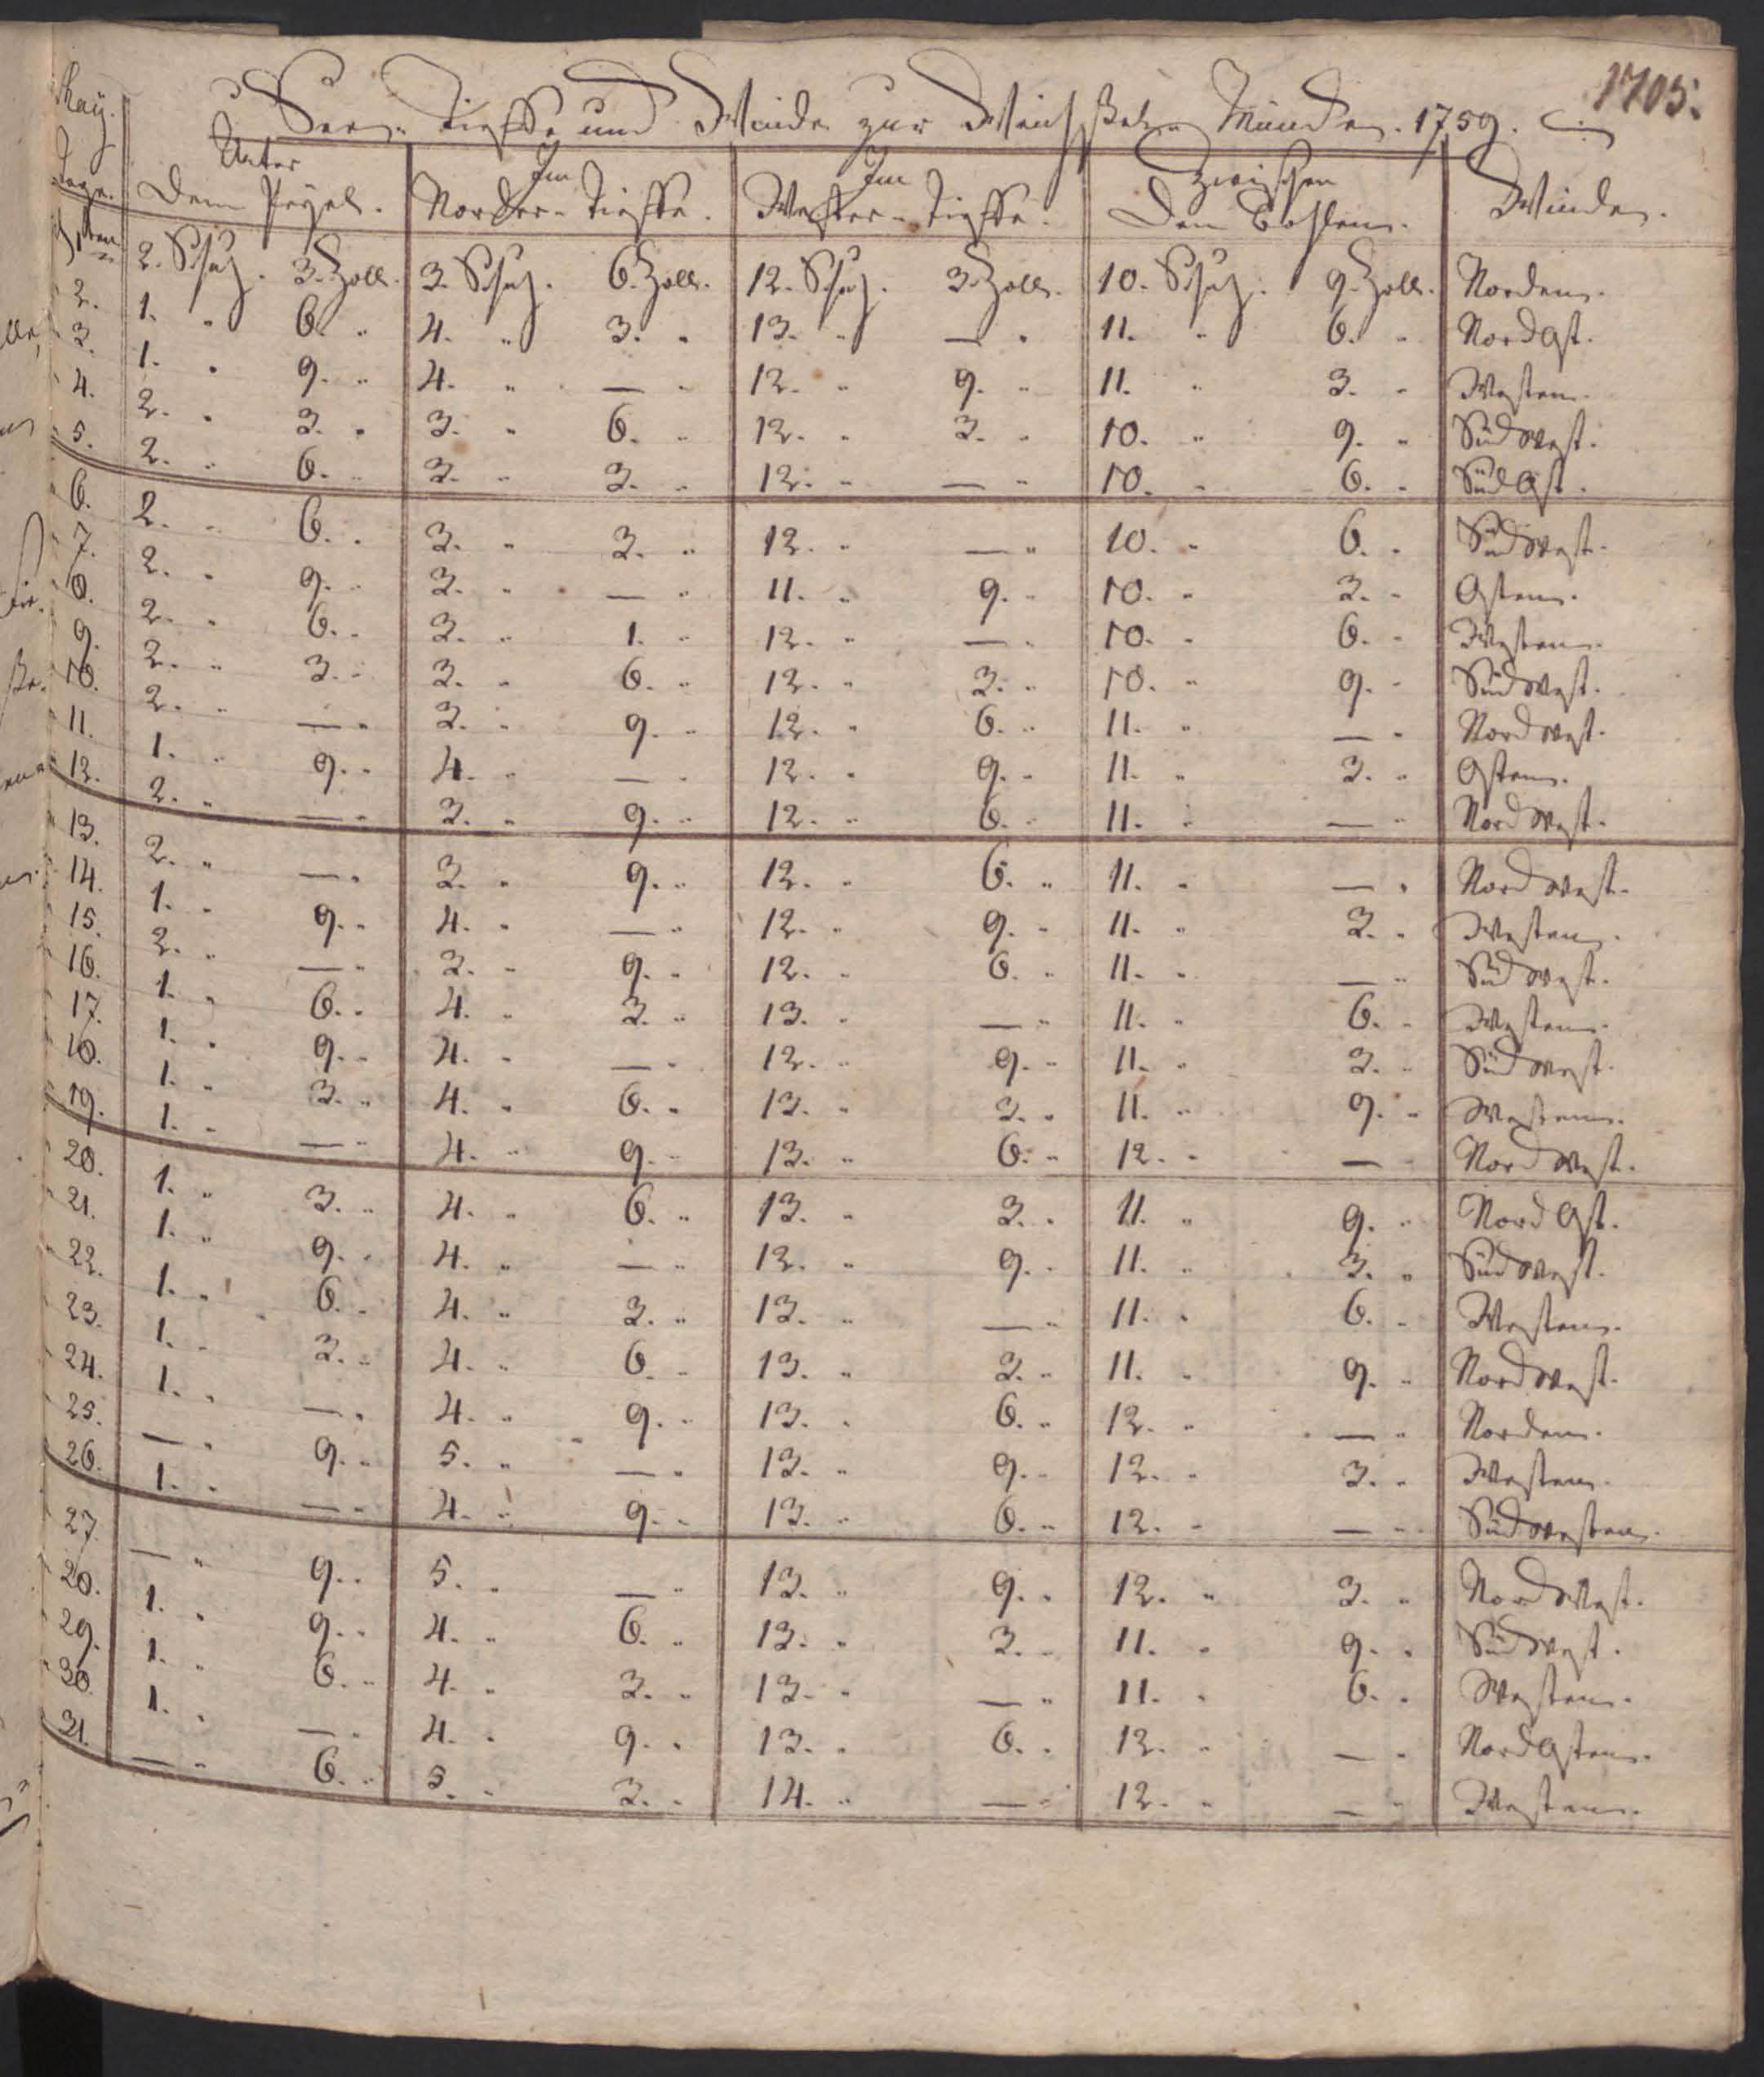 1705.
May.
See-Tieffe und Winde zur Weichselmünde. 1759.
Tage. Unter dem Peyel. Im Norder-Tieffe. Im Wester-Tieffe. Zwischen den Bohlen. Winde.
1ten 2. Schuh. 3. Zoll. 3. Schuh. 6. Zoll. 12. Schuh. 3. Zoll. 10. Schuh. 9. Zoll. Norden.
2. 1. " 6. " 4. " 3. " 13. " — " 11. " 6. " NordOst.
3. 1. " 9. " 4. " — " 12. " 9. " 11. " 3. " Westen.
4. 2. " 3. " 3. " 6. " 12. " 3. " 10. " 9. " Südwest.
5. 2. " 6. " 3. " 3. " 12. " — " 10. " 6. " SüdOst.
6. 2. " 6. " 3. " 3. " 12. " — " 10. " 6. " Südwest.
7. 2. " 9. " 3. " — " 11. " 9. " 10. " 3. " Osten.
8. 2. " 6. " 3. " 1. " 12. " — " 10. " 6. " Westen.
9. 2. " 3. " 3. " 6. " 12. " 3. " 10. " 9. " Südwest.
10. 2. " — " 3. " 9. " 12. " 6. " 11. " — " Nordwest.
11. 1. " 9. " 4. " — " 12. " 9. " 11. " 3. " Osten.
12. 2. " — " 3. " 9. " 12. " 6. " 11. " — " Nordwest.
13. 2. " — " 3. " 9. " 12. " 6. " 11. " — " Nordwest.
14. 1. " 9. " 4. " — " 12. " 9. " 11. " 3. " Westen.
15. 2. " — " 3. " 9. " 12. " 6. " 11. " — " Südwest.
16. 1. " 6. " 4. " 3. " 13. " — " 11. " 6. " Westen.
17. 1. " 9. " 4. " — " 12. " 9. " 11. " 3. " Südwest.
18. 1. " 3. " 4. " 6. " 13. " 3. " 11. " 9. " Westen.
19. 1. " — " 4. " 9. " 13. " 6. " 12. " — " Nordwest.
20. 1. " 3. " 4. " 6. " 13. " 3. " 11. " 9. " NordOst.
21. 1. " 9. " 4. " — " 12. " 9. " 11. " 3. " Südwest.
22. 1. " 6. " 4. " 3. " 13. " — " 11. " 6. " Westen.
23. 1. " 3. " 4. " 6. " 13. " 3. " 11. " 9. " Nordwest.
24. 1. " — " 4. " 9. " 13. " 6. " 12. " — " Norden.
25. — " 9. " 5. " — " 13. " 9. " 12. " 3. " Westen.
26. 1. " — " 4. " 9. " 13. " 6. " 12. " — " Südwesten.
27. — " 9. " 5. " — " 13. " 9. " 12. " 3. " NordWest.
28. 1. " 9. " 4. " 6. " 13. " 3. " 11. " 9. " Südwest.
29. 1. " 6. " 4. " 3. " 13. " — " 11. " 6. " Westen.
30. 1. " — " 4. " 9. " 13. " 6. " 12. " — " NordOsten.
31. — " 6. " 5. " 3. " 14. " — " 12. " — " Westen.